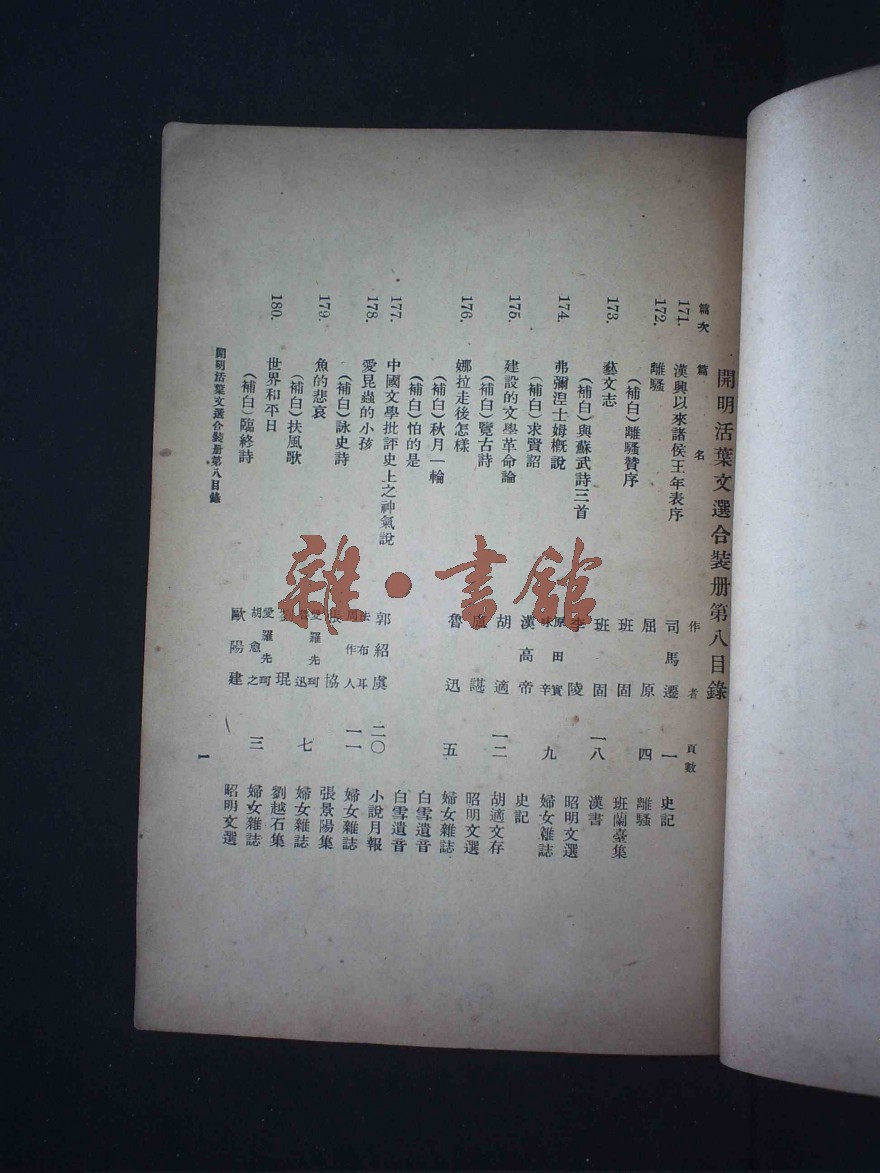 開明活葉文選合裝册第八目錄
篇次 篇名 作者 頁數
171. 漢興以來諸侯王年表序 司馬遷 一 史記
172. 離騷 屈原 四 離騷
(補白)離騷贊序 班固 班蘭臺集
173. 藝文志 班固 一八 漢書
(補白)與蘇武詩三首 李陵 昭明文選
174. 弗彌涅士姆概說 原田實 味辛 九 婦女雜誌
(補白)求賢詔 漢高帝 史記
175. 建設的文學革命論 胡適 一二 胡適文存
(補白)覽古詩 盧諶 昭明文選
176. 娜拉走後怎樣 魯迅 五 婦女雜誌
(補白)秋月一輪 白雪遺音
(補白)怕的是 白雪遺音
177. 中國文學批評史上之神氣說 郭紹虞 二〇 小說月報
178. 愛昆蟲的小孩 法布耳 周作人 一一 婦女雜誌
(補白)詠史詩 張協 張景陽集
179. 魚的悲哀 愛羅先珂 魯迅 七 婦女雜誌
(補白)扶風歌 劉琨 劉越石集
180. 世界和平日 愛羅先珂 胡愈之 三 婦女雜誌
(補白)臨終詩 歐陽建 昭明文選
開明活葉文選合裝册第八目錄 一
雜·書館